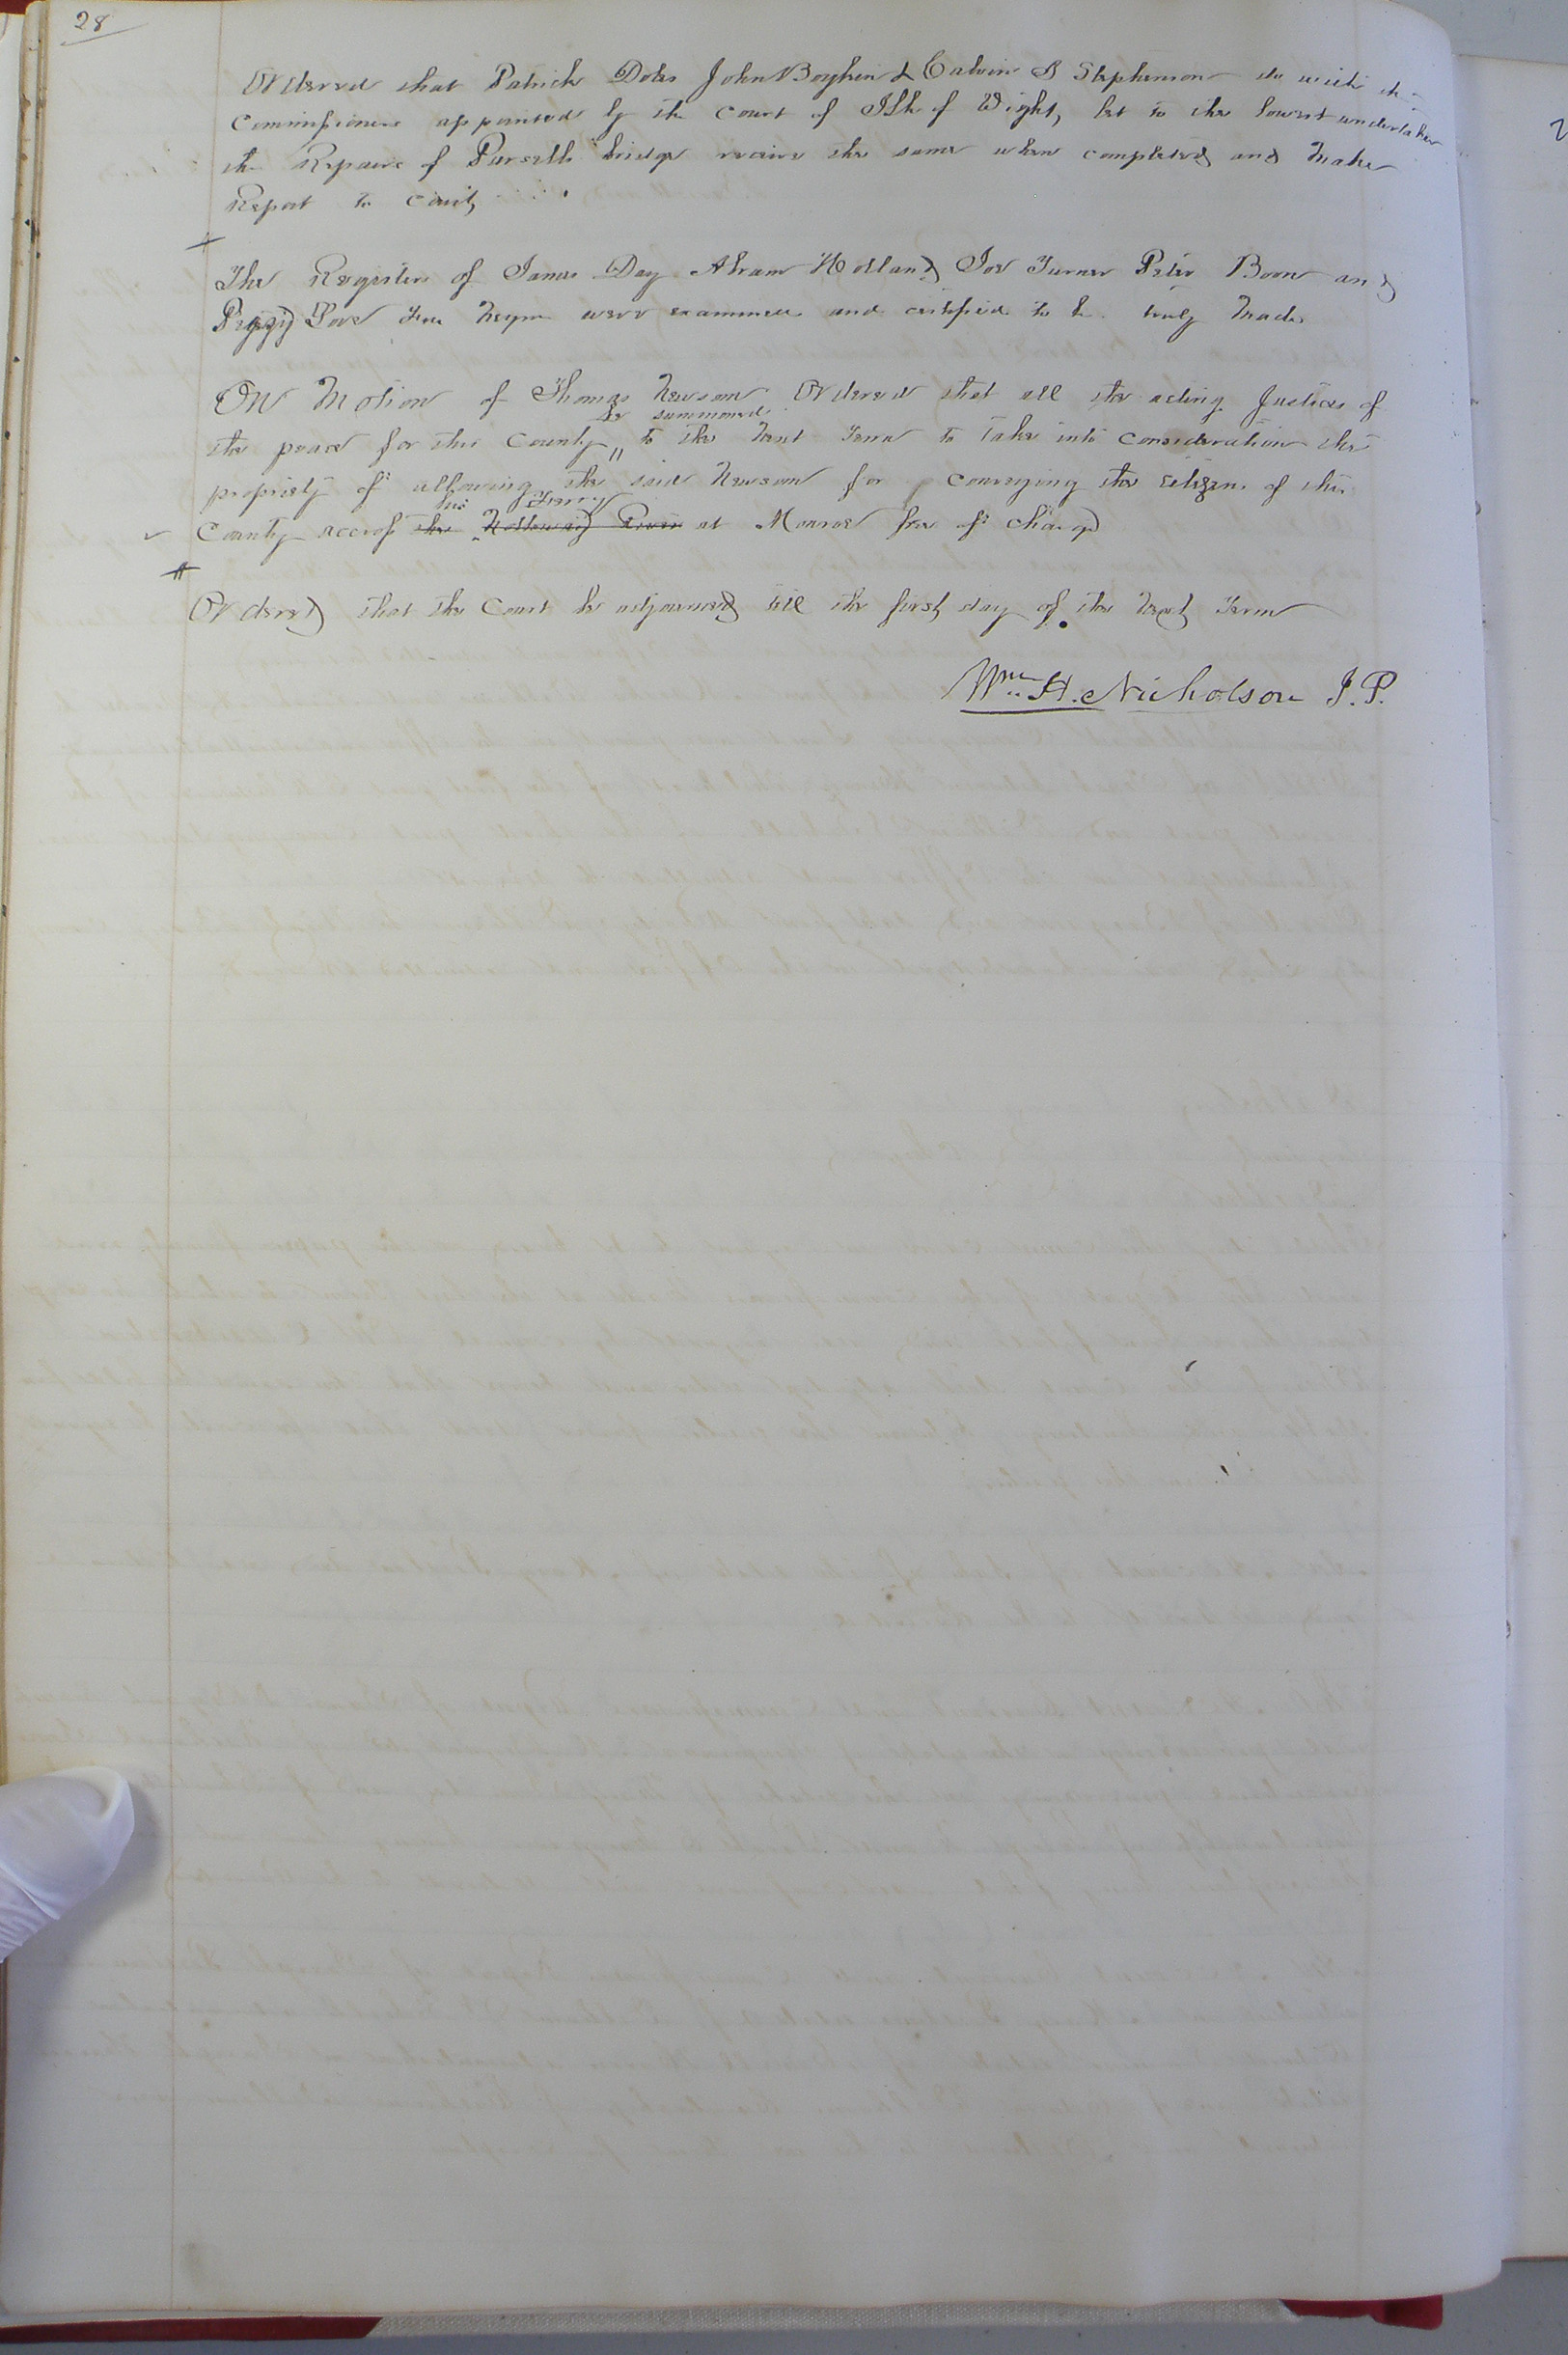 28
Ordered that Patrick Doles John Boykin & Calvin S Stephenson do with the
commissioners appointed by the Court of Isle of Wight, let to the lowest undertaker
the Repairs of Pursells bridge receive the same when completed and make
Report to Court
The Registers of James Day Abram Holland Joe Turner Peter Boon and
Peggy free Negroes were examined and certified to be truly made
On Motion of Thomas Newsom Ordered that all the acting Justices of
be summoned
the peace for this County to the next Term to take into consideration the
propriety of allowing the said Newsom for conveying the citizens of this
his Ferry
County across the Nottoway River at Monroe free of charge
Ordered that the Court be adjourned till the first day of the next Term
Wm H. Nicholson J.P.